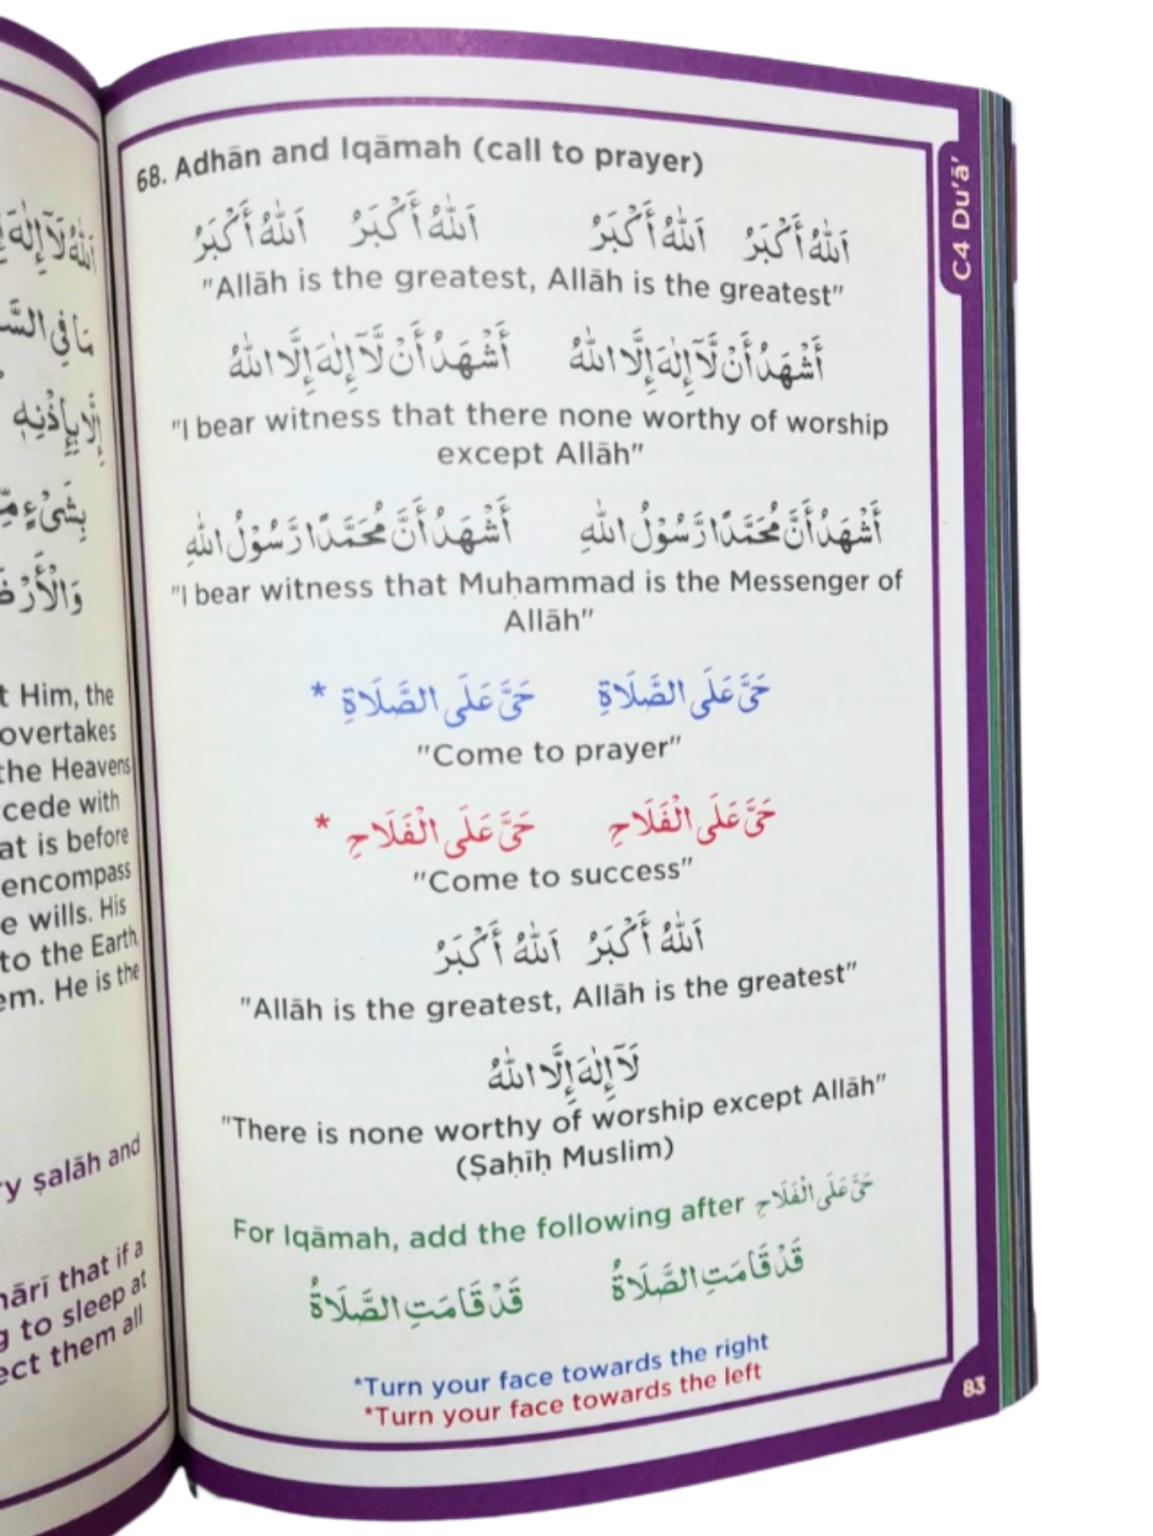 اَللّٰهُ لَآ إِلٰهَ
مَا فِي
إِلَّا بِإِذْنِهٖ
بِشَيْءٍ
t Him, the
overtakes
the Heavens
cede with
at is before
encompass
e wills. His
to the Earth,
em. He is the
ry ṣalāh and
hārī that if a
g to sleep at
ect them all
68. Adhān and Iqāmah (call to prayer)
اَللّٰهُ أَكْبَرُ اَللّٰهُ أَكْبَرُ اَللّٰهُ أَكْبَرُ اَللّٰهُ أَكْبَرُ
"Allāh is the greatest, Allāh is the greatest"
أَشْهَدُ أَنْ لَّآ إِلٰهَ إِلَّا اللّٰهُ أَشْهَدُ أَنْ لَّآ إِلٰهَ إِلَّا اللّٰهُ
"I bear witness that there none worthy of worship
except Allāh"
أَشْهَدُ أَنَّ مُحَمَّدًا رَّسُوْلُ اللّٰهِ أَشْهَدُ أَنَّ مُحَمَّدًا رَّسُوْلُ اللّٰهِ
"I bear witness that Muḥammad is the Messenger of
Allāh"
حَيَّ عَلَى الصَّلَاةِ حَيَّ عَلَى الصَّلَاةِ *
"Come to prayer"
حَيَّ عَلَى الْفَلَاحِ حَيَّ عَلَى الْفَلَاحِ *
"Come to success"
اَللّٰهُ أَكْبَرُ اَللّٰهُ أَكْبَرُ
"Allāh is the greatest, Allāh is the greatest"
لَآ إِلٰهَ إِلَّا اللّٰهُ
"There is none worthy of worship except Allāh"
(Ṣaḥīḥ Muslim)
For Iqāmah, add the following after حَيَّ عَلَى الْفَلَاح
قَدْ قَامَتِ الصَّلَاةُ قَدْ قَامَتِ الصَّلَاةُ
*Turn your face towards the right
*Turn your face towards the left
C4 Du'ā'
83